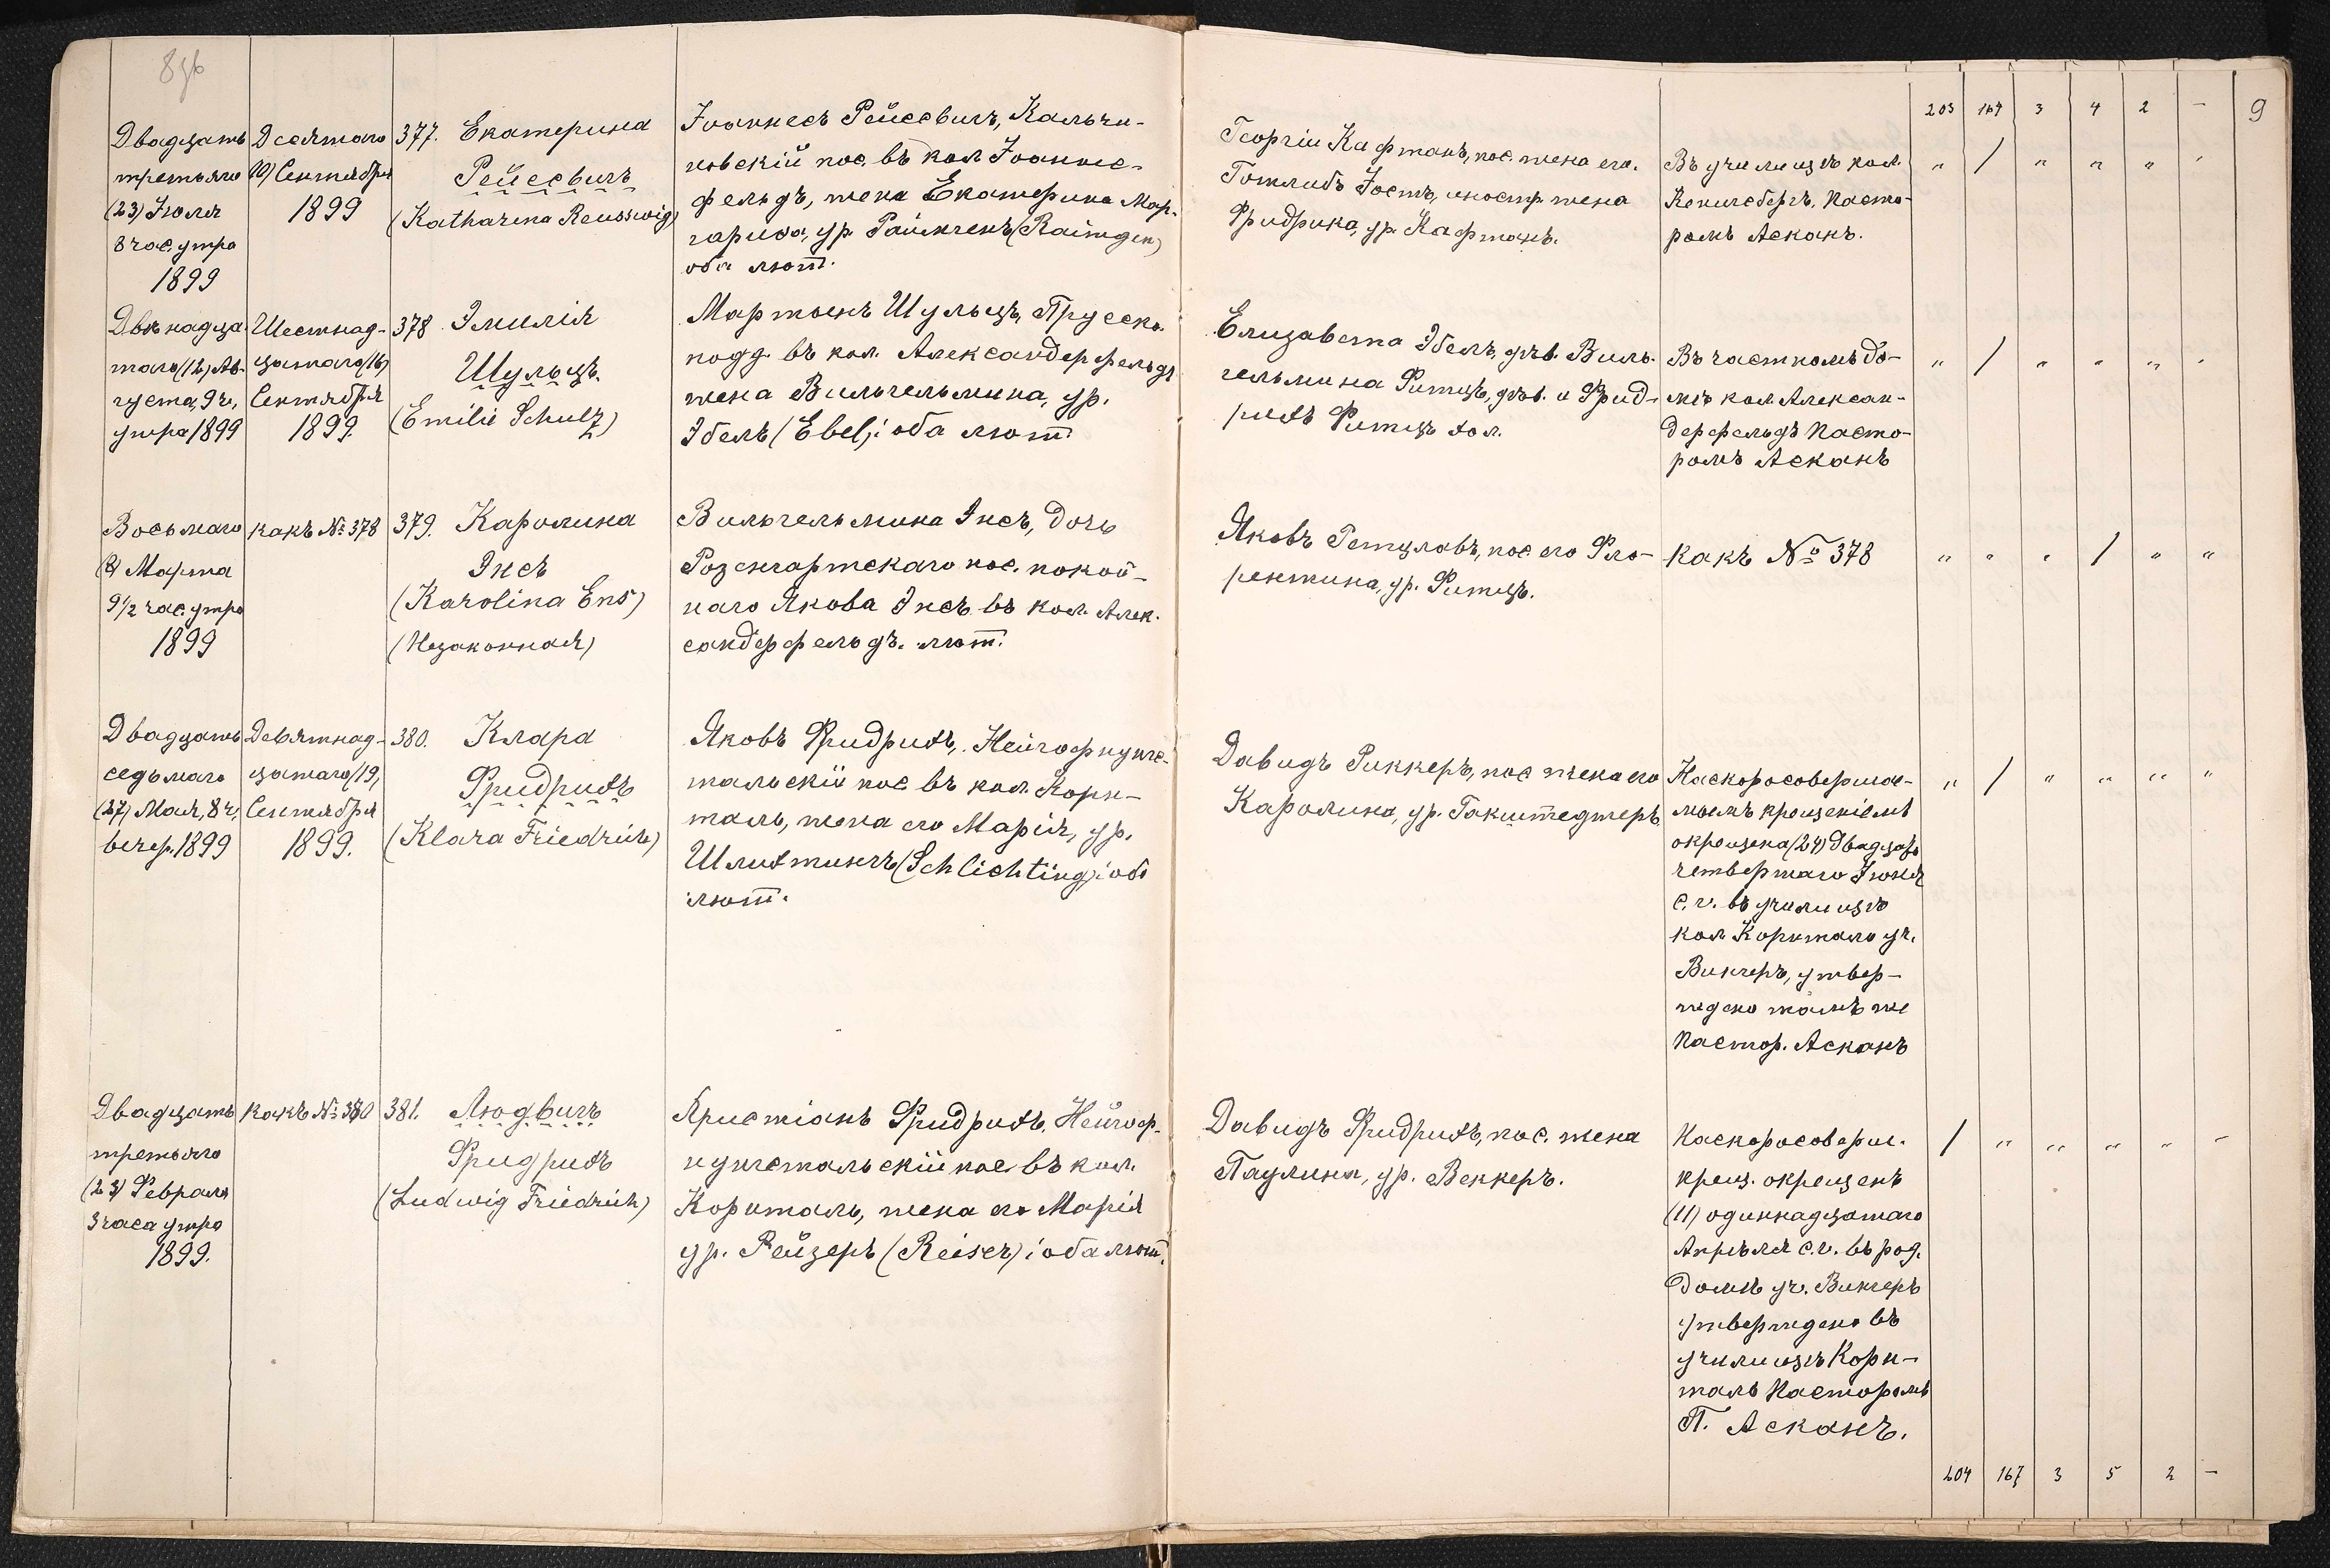 203 164 3 4 2 – 9
Двадцать
третьяго
(23) Іюля
8 час. утра
1899
Десятаго
(10) Сентября
1899
377. Екатерина
Рейссвигъ
(Katharina Reusswig)
Іоаннесъ Рейссвигъ, Кальчи-
новскій пос. въ кол Іоаннес-
фельдъ, жена Екатерина Мар-
гариѳа, ур. Раймгенъ (Raimgen)
оба лют.
Георгій Кафтанъ, пос. жена его.
Готлибъ Іостъ, иностр. жена
Фридрика, ур. Кафтанъ.
Въ училищѣ кол.
Кенигсбергъ. Пасто-
ромъ Асканъ.
„ / „ „ „ „
Двѣнадца-
таго (12) Ав-
густа, 9 ч,
утра 1899
Шестнад-
цатаго (16)
Сентября
1899.
378 Эмилія
Шульцъ.
(Emilie Schulz)
Мартынъ Шульцъ, Прусск.
подд. въ кол. Александерфельдъ
жена Вильгельмина, ур.
Эбель (Ebel); оба лют.
Елизавета Эбель, дѣв. Виль-
гельмина Ритцъ, дѣв. и Фрид-
рихъ Ритцъ хол.
Въ частномъ до-
мѣ кол. Алексан-
дерфельдъ Пасто-
ромъ Асканъ
„ / „ „ „ „
Восьмаго
(8) Марта
9 1/2 час. утра
1899
какъ № 378
379. Каролина
Энсъ
(Karolina Ens)
(Незаконная)
Вильгельмина Энсъ, дочь
Розенгартскаго пос. покой-
наго Якова Энсъ въ кол. Алек-
сандерфельдъ. лют.
Яковъ Гетцлавъ, пос. его Фло-
рентина, ур. Ритцъ.
какъ № 378
„ „ „ / „ „
Двадцать
седьмаго
(27) Мая, 8 ч,
вечер. 1899
Девятнад-
цатаго (19)
Сентября
1899.
380. Клара
Фридрихъ
(Klara Friedrich)
Яковъ Фридрихъ, Нейгофнунгс-
тальскій пос въ кол. Корн-
таль, жена его Марія, ур.
Шлихтингъ (Schlichting); оба
лют.
Давидъ Риккеръ, пос жена его
Каролина, ур. Гакштедтеръ
Наскоросовершае-
мымъ крещеніемъ
окрещена (24) двадцать
четвертаго Іюня
с. г. въ училищѣ
кол Корнталь уч.
Вингеръ, утвер-
ждено тамъ же
Пастор. Асканъ
„ / „ „ „ „
Двадцать
третьяго
(23) Февраля
3 часа утра
1899.
какъ № 380
381. Людвигъ
Фридрихъ
(Ludwig Friedrich)
Христіанъ Фридрихъ, Нейгоф-
нунгстальскій пос. въ кол.
Корнталь, жена его Марія
ур. Рейзеръ (Reiser); оба лют.
Давидъ Фридрихъ, пос. жена
Паулина, ур. Веккеръ.
Наскоросоверш.
крещ. окрещенъ
(11) одиннадцатаго
Апрѣля с. г. въ род.
домѣ уч. Вингеръ
утверждено въ
училищѣ Корн-
таль Пасторомъ
П. Асканъ.
/ „ „ „ „ –
204 167 3 5 2 –